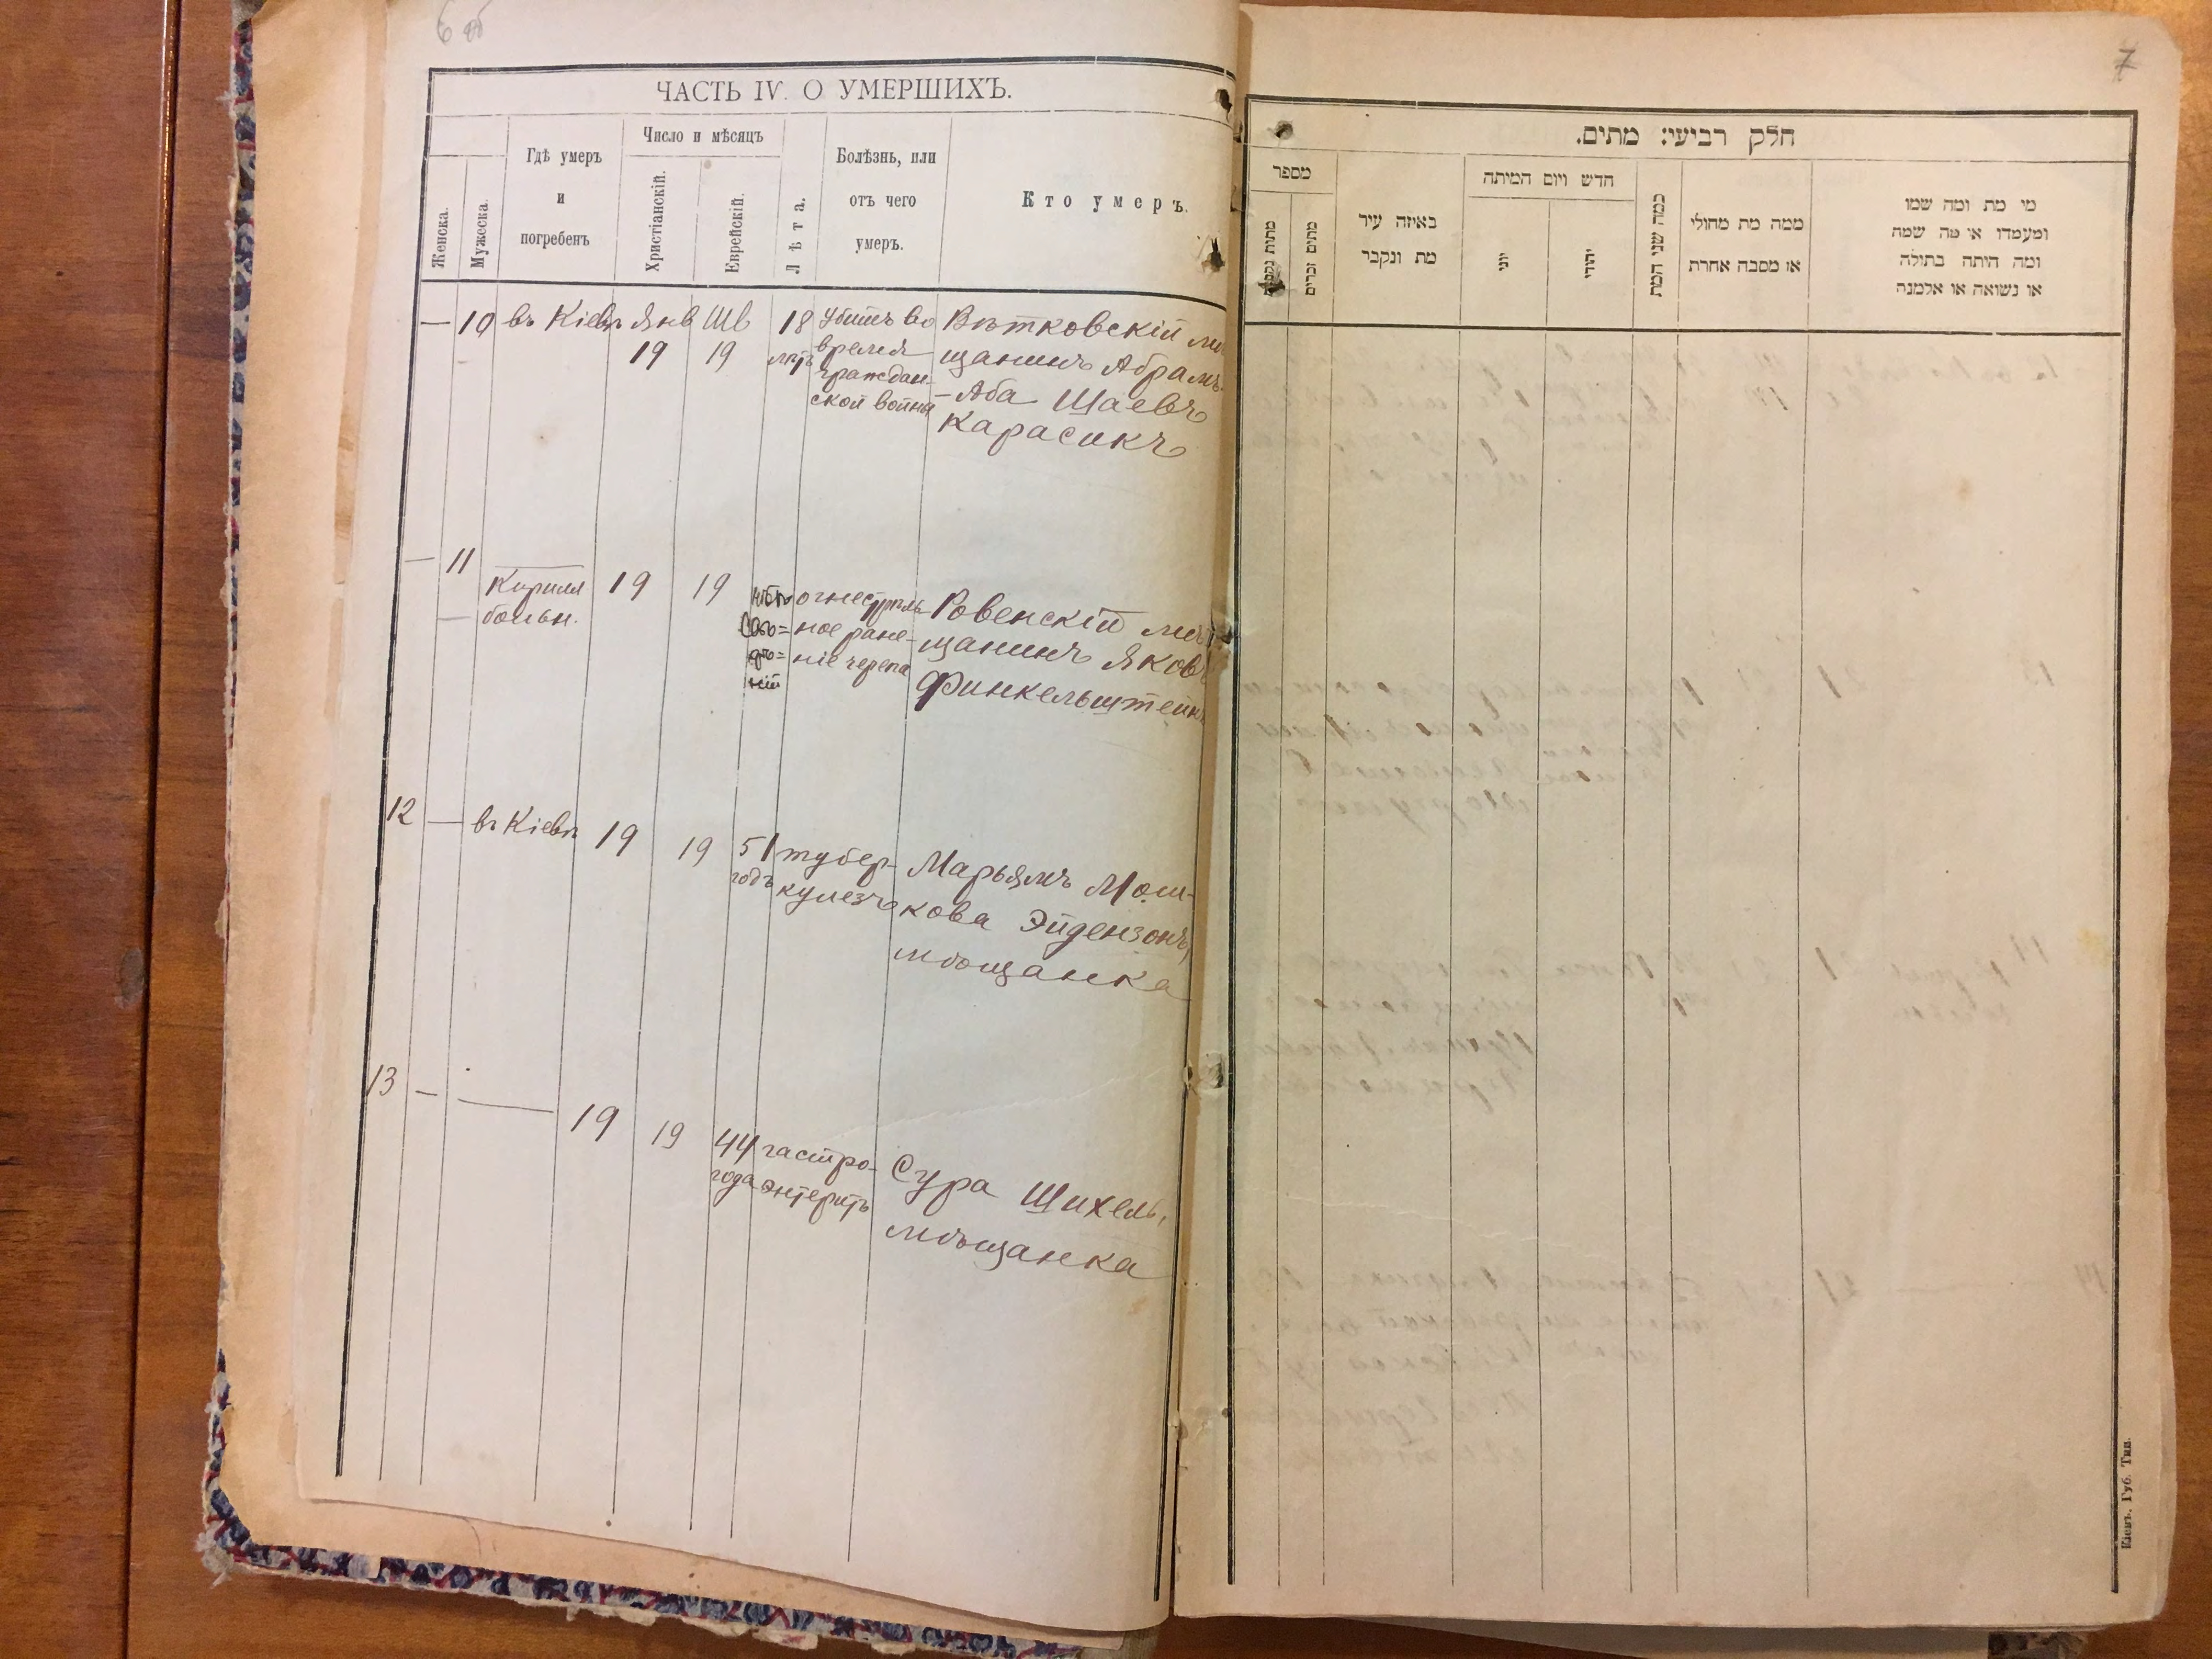 6 об
ЧАСТЬ IV. О УМЕРШИХЪ.
Женска.
Мужеска.
Гдѣ умеръ
и
погребенъ
Число и мѣсяцъ
Христіанскій.
Еврейскій.
Лѣта.
Болѣзнь, или
отъ чего
умеръ.
Кто умеръ.
— 10 въ Кіевѣ Янв Шв 18 Убитъ во Вѣтковскій мѣ
19 19 лѣтъ время щанинъ Абрамъ-
граждан- -Аба Шаевъ
ской войны Карасикъ
— 11
Кирилл 19 19 огнестрѣль Ровенскій мѣ
— больн. ное ране- щанинъ Яковъ
ніе черепа Финкельштейнъ
12 — въ Кіевѣ 19 19 51 тубер- Марьямъ Мош-
годъ кулезъ кова Эйдензонъ,
мѣщанка
13 — — 19 19 44 гастро- Сура Шихель,
года энтеритъ мѣщанка
7
חלק רביעי: מתים.
מספר
מתים זכרים
באיזה עיר
מת ונקבר
חדש ויום המיתה
יוני
יהודי
כמה שני המת
ממה מת מחולי
או מסבה אחרת
מי מת ומה שמו
ומעמדו או מה שמה
ומה היתה בתולה
או נשואה או אלמנה
Кіевъ. Губ. Тип.